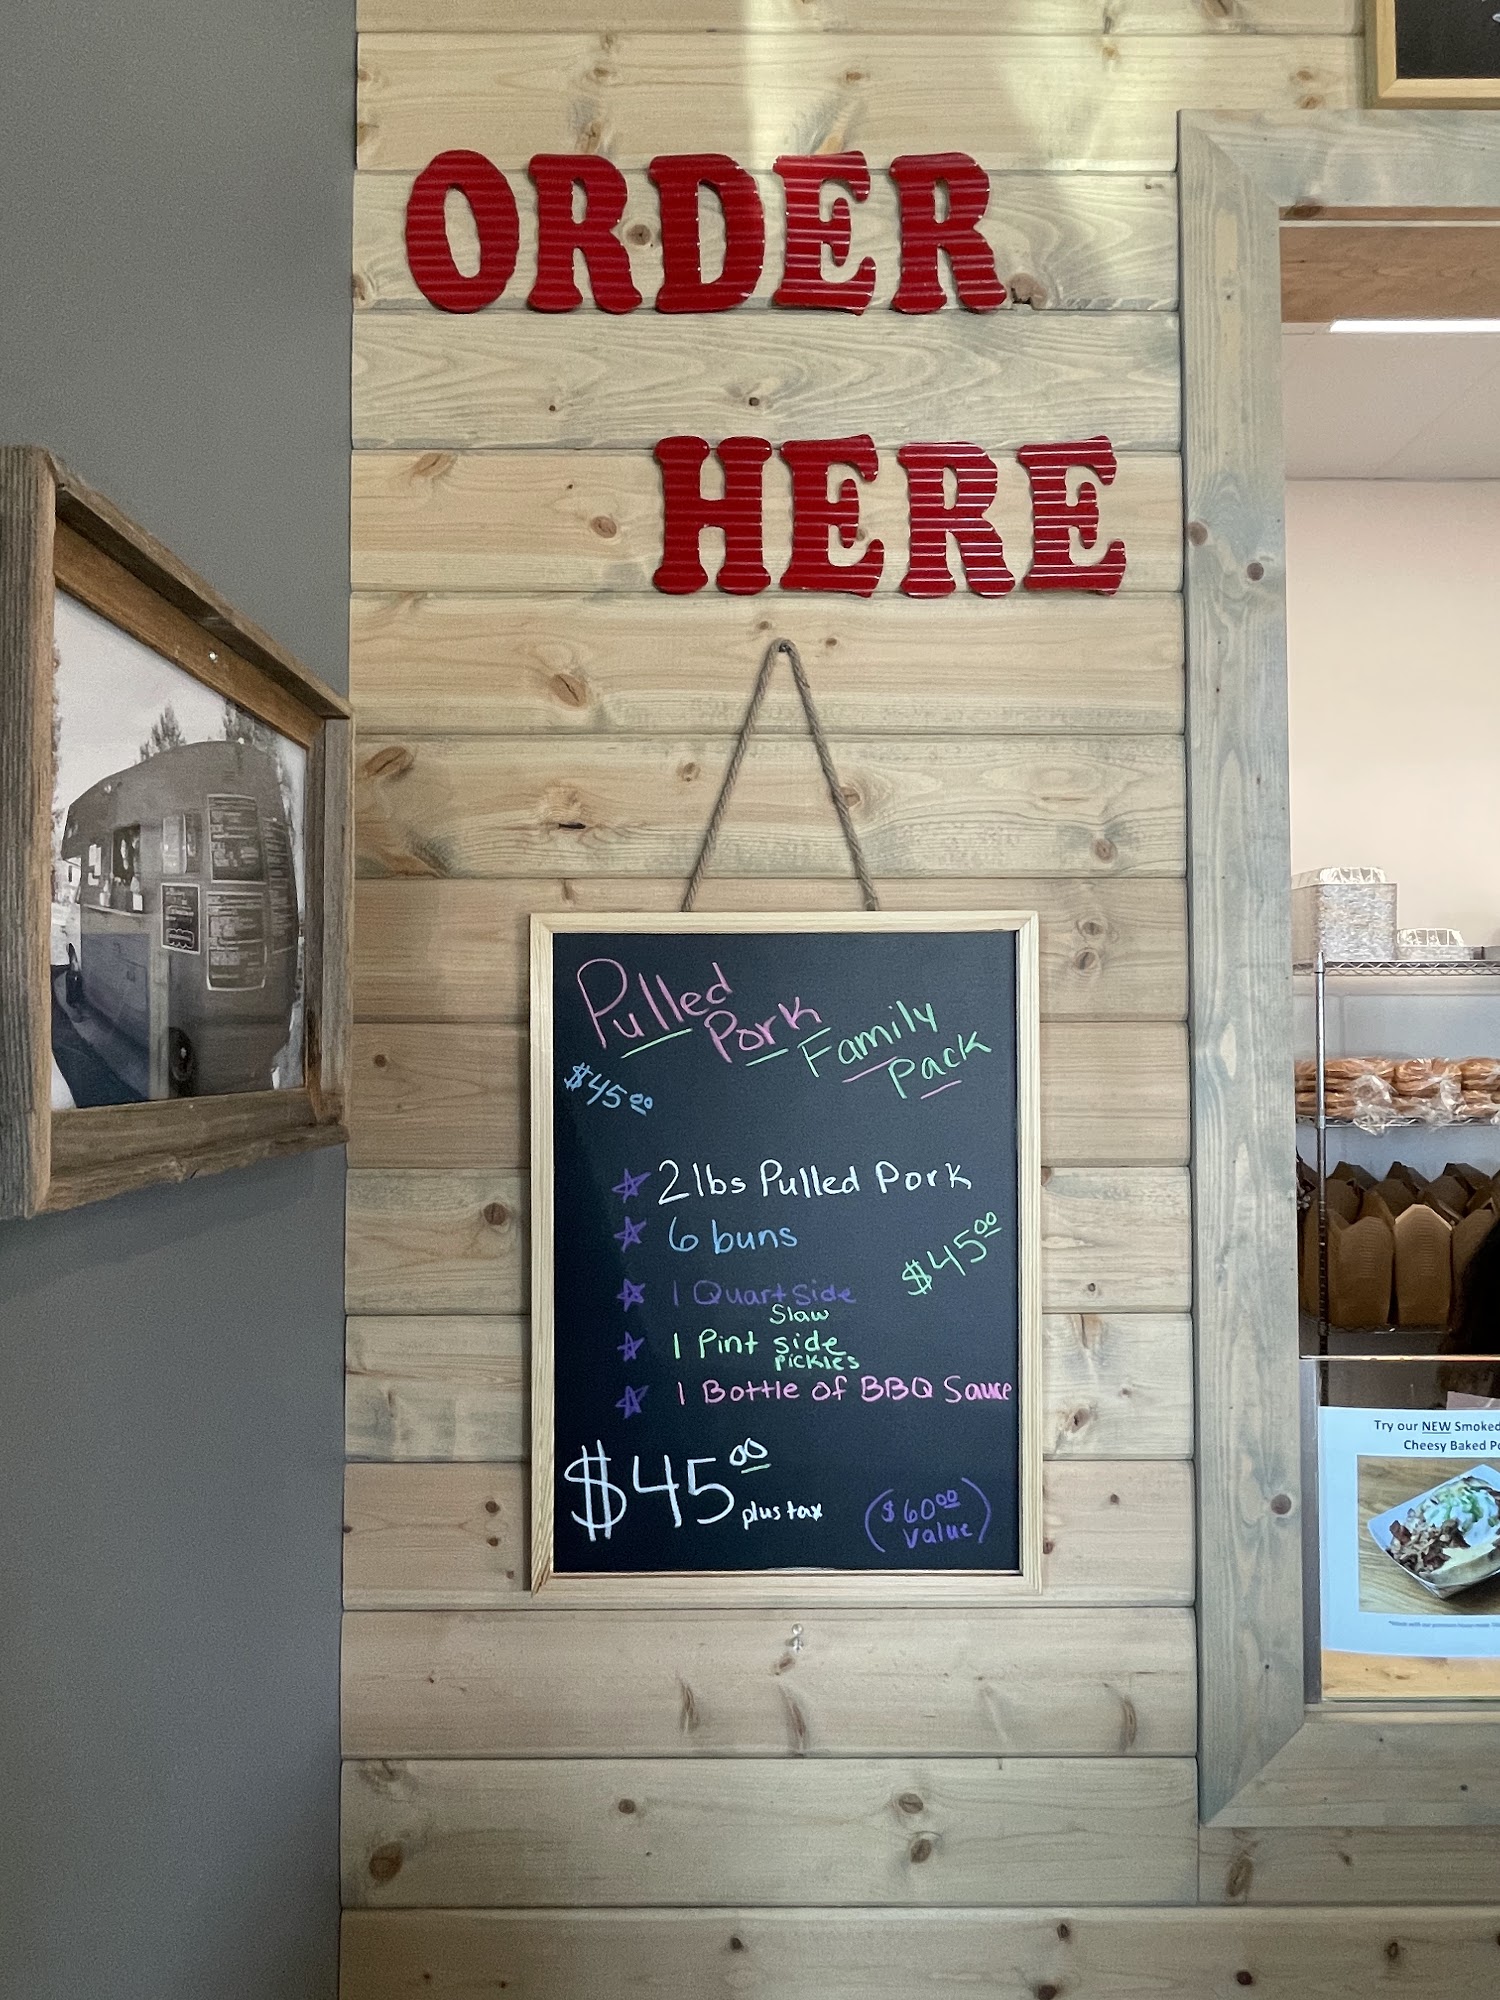 ORDER
HERE
Pulled
Pork
Family
Pack
$45.00
2 lbs Pulled Pork
6 buns
$45.00
1 Quart side
Slaw
1 Pint side
Pickles
1 Bottle of BBQ Sauce
$45.00
plus tax
($60.00
Value)
Try our NEW Smoked
Cheesy Baked